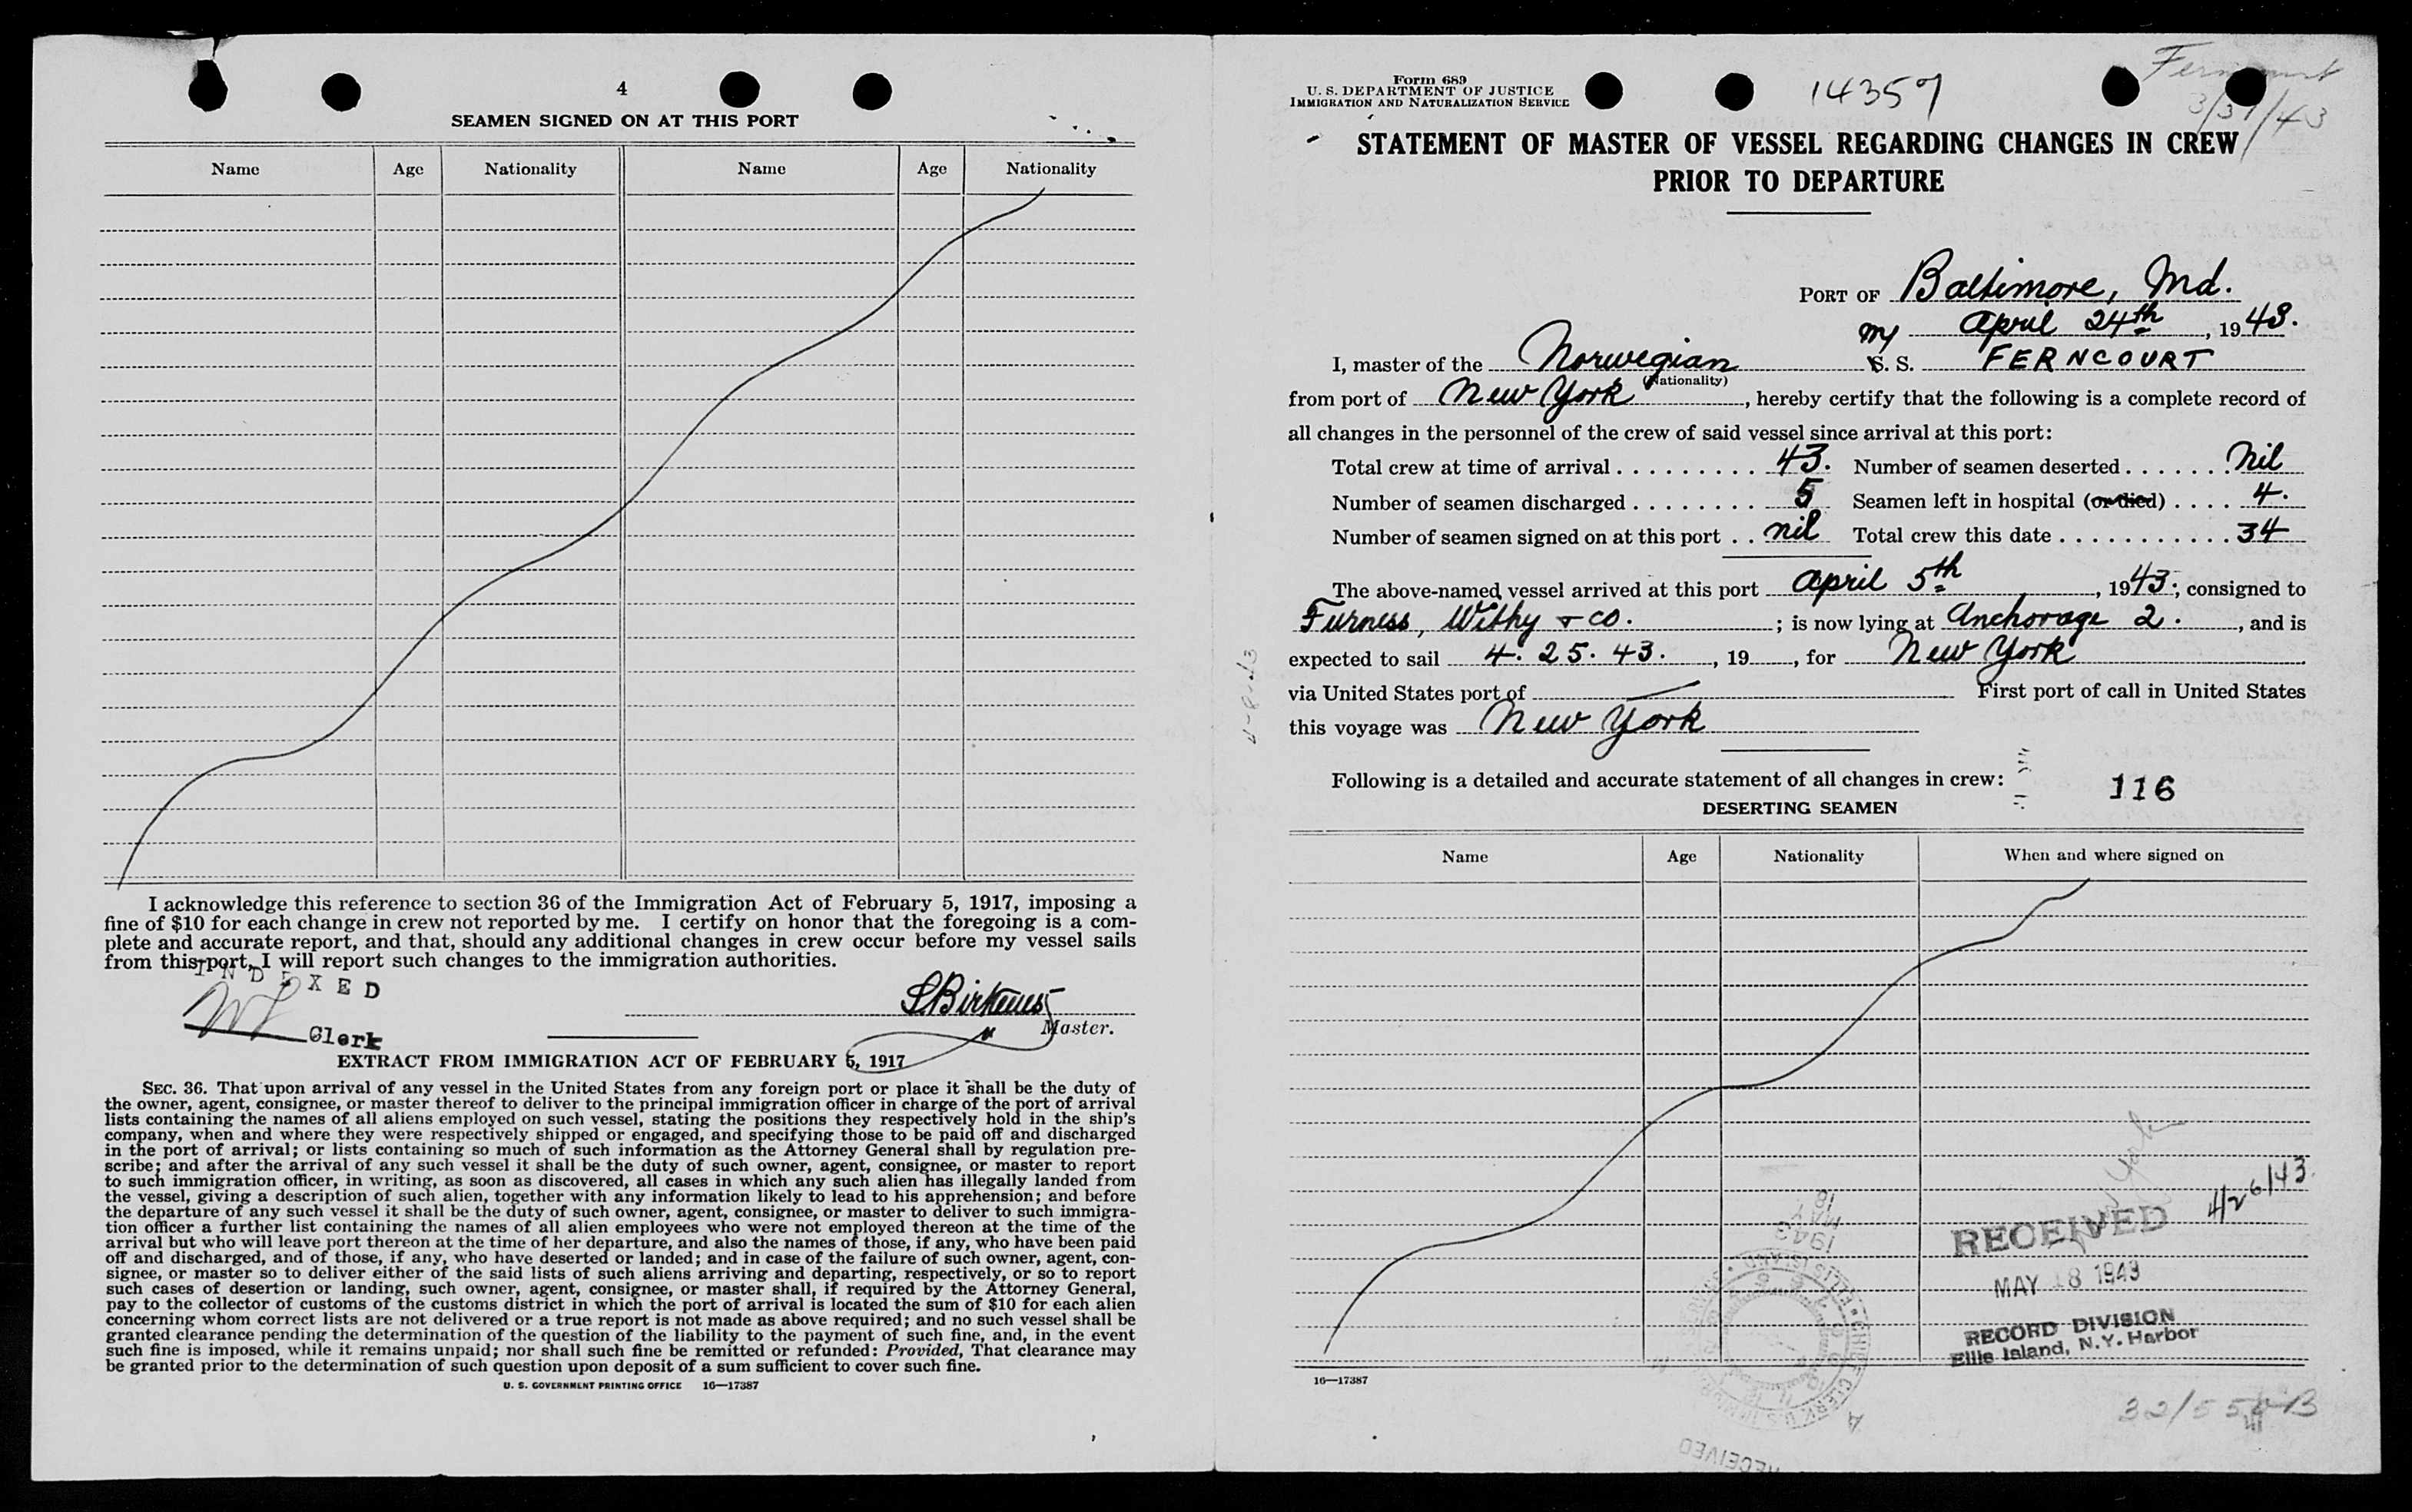 4
SEAMEN SIGNED ON AT THIS PORT
Name Age Nationality Name Age Nationality
I acknowledge this reference to section 36 of the Immigration Act of February 5, 1917, imposing a
fine of $10 for each change in crew not reported by me. I certify on honor that the foregoing is a com-
plete and accurate report, and that, should any additional changes in crew occur before my vessel sails
from this port, I will report such changes to the immigration authorities.
INDEXED
Clerk
S. Birknes
Master.
EXTRACT FROM IMMIGRATION ACT OF FEBRUARY 5, 1917
SEC. 36. That upon arrival of any vessel in the United States from any foreign port or place it shall be the duty of
the owner, agent, consignee, or master thereof to deliver to the principal immigration officer in charge of the port of arrival
lists containing the names of all aliens employed on such vessel, stating the positions they respectively hold in the ship's
company, when and where they were respectively shipped or engaged, and specifying those to be paid off and discharged
in the port of arrival; or lists containing so much of such information as the Attorney General shall by regulation pre-
scribe; and after the arrival of any such vessel it shall be the duty of such owner, agent, consignee, or master to report
to such immigration officer, in writing, as soon as discovered, all cases in which any such alien has illegally landed from
the vessel, giving a description of such alien, together with any information likely to lead to his apprehension; and before
the departure of any such vessel it shall be the duty of such owner, agent, consignee, or master to deliver to such immigra-
tion officer a further list containing the names of all alien employees who were not employed thereon at the time of the
arrival but who will leave port thereon at the time of her departure, and also the names of those, if any, who have been paid
off and discharged, and of those, if any, who have deserted or landed; and in case of the failure of such owner, agent, con-
signee, or master so to deliver either of the said lists of such aliens arriving and departing, respectively, or so to report
such cases of desertion or landing, such owner, agent, consignee, or master shall, if required by the Attorney General,
pay to the collector of customs of the customs district in which the port of arrival is located the sum of $10 for each alien
concerning whom correct lists are not delivered or a true report is not made as above required; and no such vessel shall be
granted clearance pending the determination of the question of the liability to the payment of such fine, and, in the event
such fine is imposed, while it remains unpaid; nor shall such fine be remitted or refunded: Provided, That clearance may
be granted prior to the determination of such question upon deposit of a sum sufficient to cover such fine.
U. S. GOVERNMENT PRINTING OFFICE 16—17387
Form 689
U. S. DEPARTMENT OF JUSTICE
IMMIGRATION AND NATURALIZATION SERVICE
14357
3/31/43
STATEMENT OF MASTER OF VESSEL REGARDING CHANGES IN CREW
PRIOR TO DEPARTURE
PORT OF Baltimore, Md.
April 24th, 1943.
I, master of the Norwegian m/ S. S. FERNCOURT
(Nationality)
from port of New York, hereby certify that the following is a complete record of
all changes in the personnel of the crew of said vessel since arrival at this port:
Total crew at time of arrival 43. Number of seamen deserted Nil
Number of seamen discharged 5 Seamen left in hospital (or died) 4.
Number of seamen signed on at this port nil Total crew this date 34
The above-named vessel arrived at this port April 5th, 1943; consigned to
Furness, Withy + Co.; is now lying at Anchorage 2., and is
expected to sail 4. 25. 43., 19, for New York
via United States port of — First port of call in United States
this voyage was New York
Following is a detailed and accurate statement of all changes in crew:
116
DESERTING SEAMEN
Name Age Nationality When and where signed on
4/26/43
RECEIVED
MAY 18 1943
RECORD DIVISION
Ellis Island, N.Y. Harbor
16—17387
RECEIVED